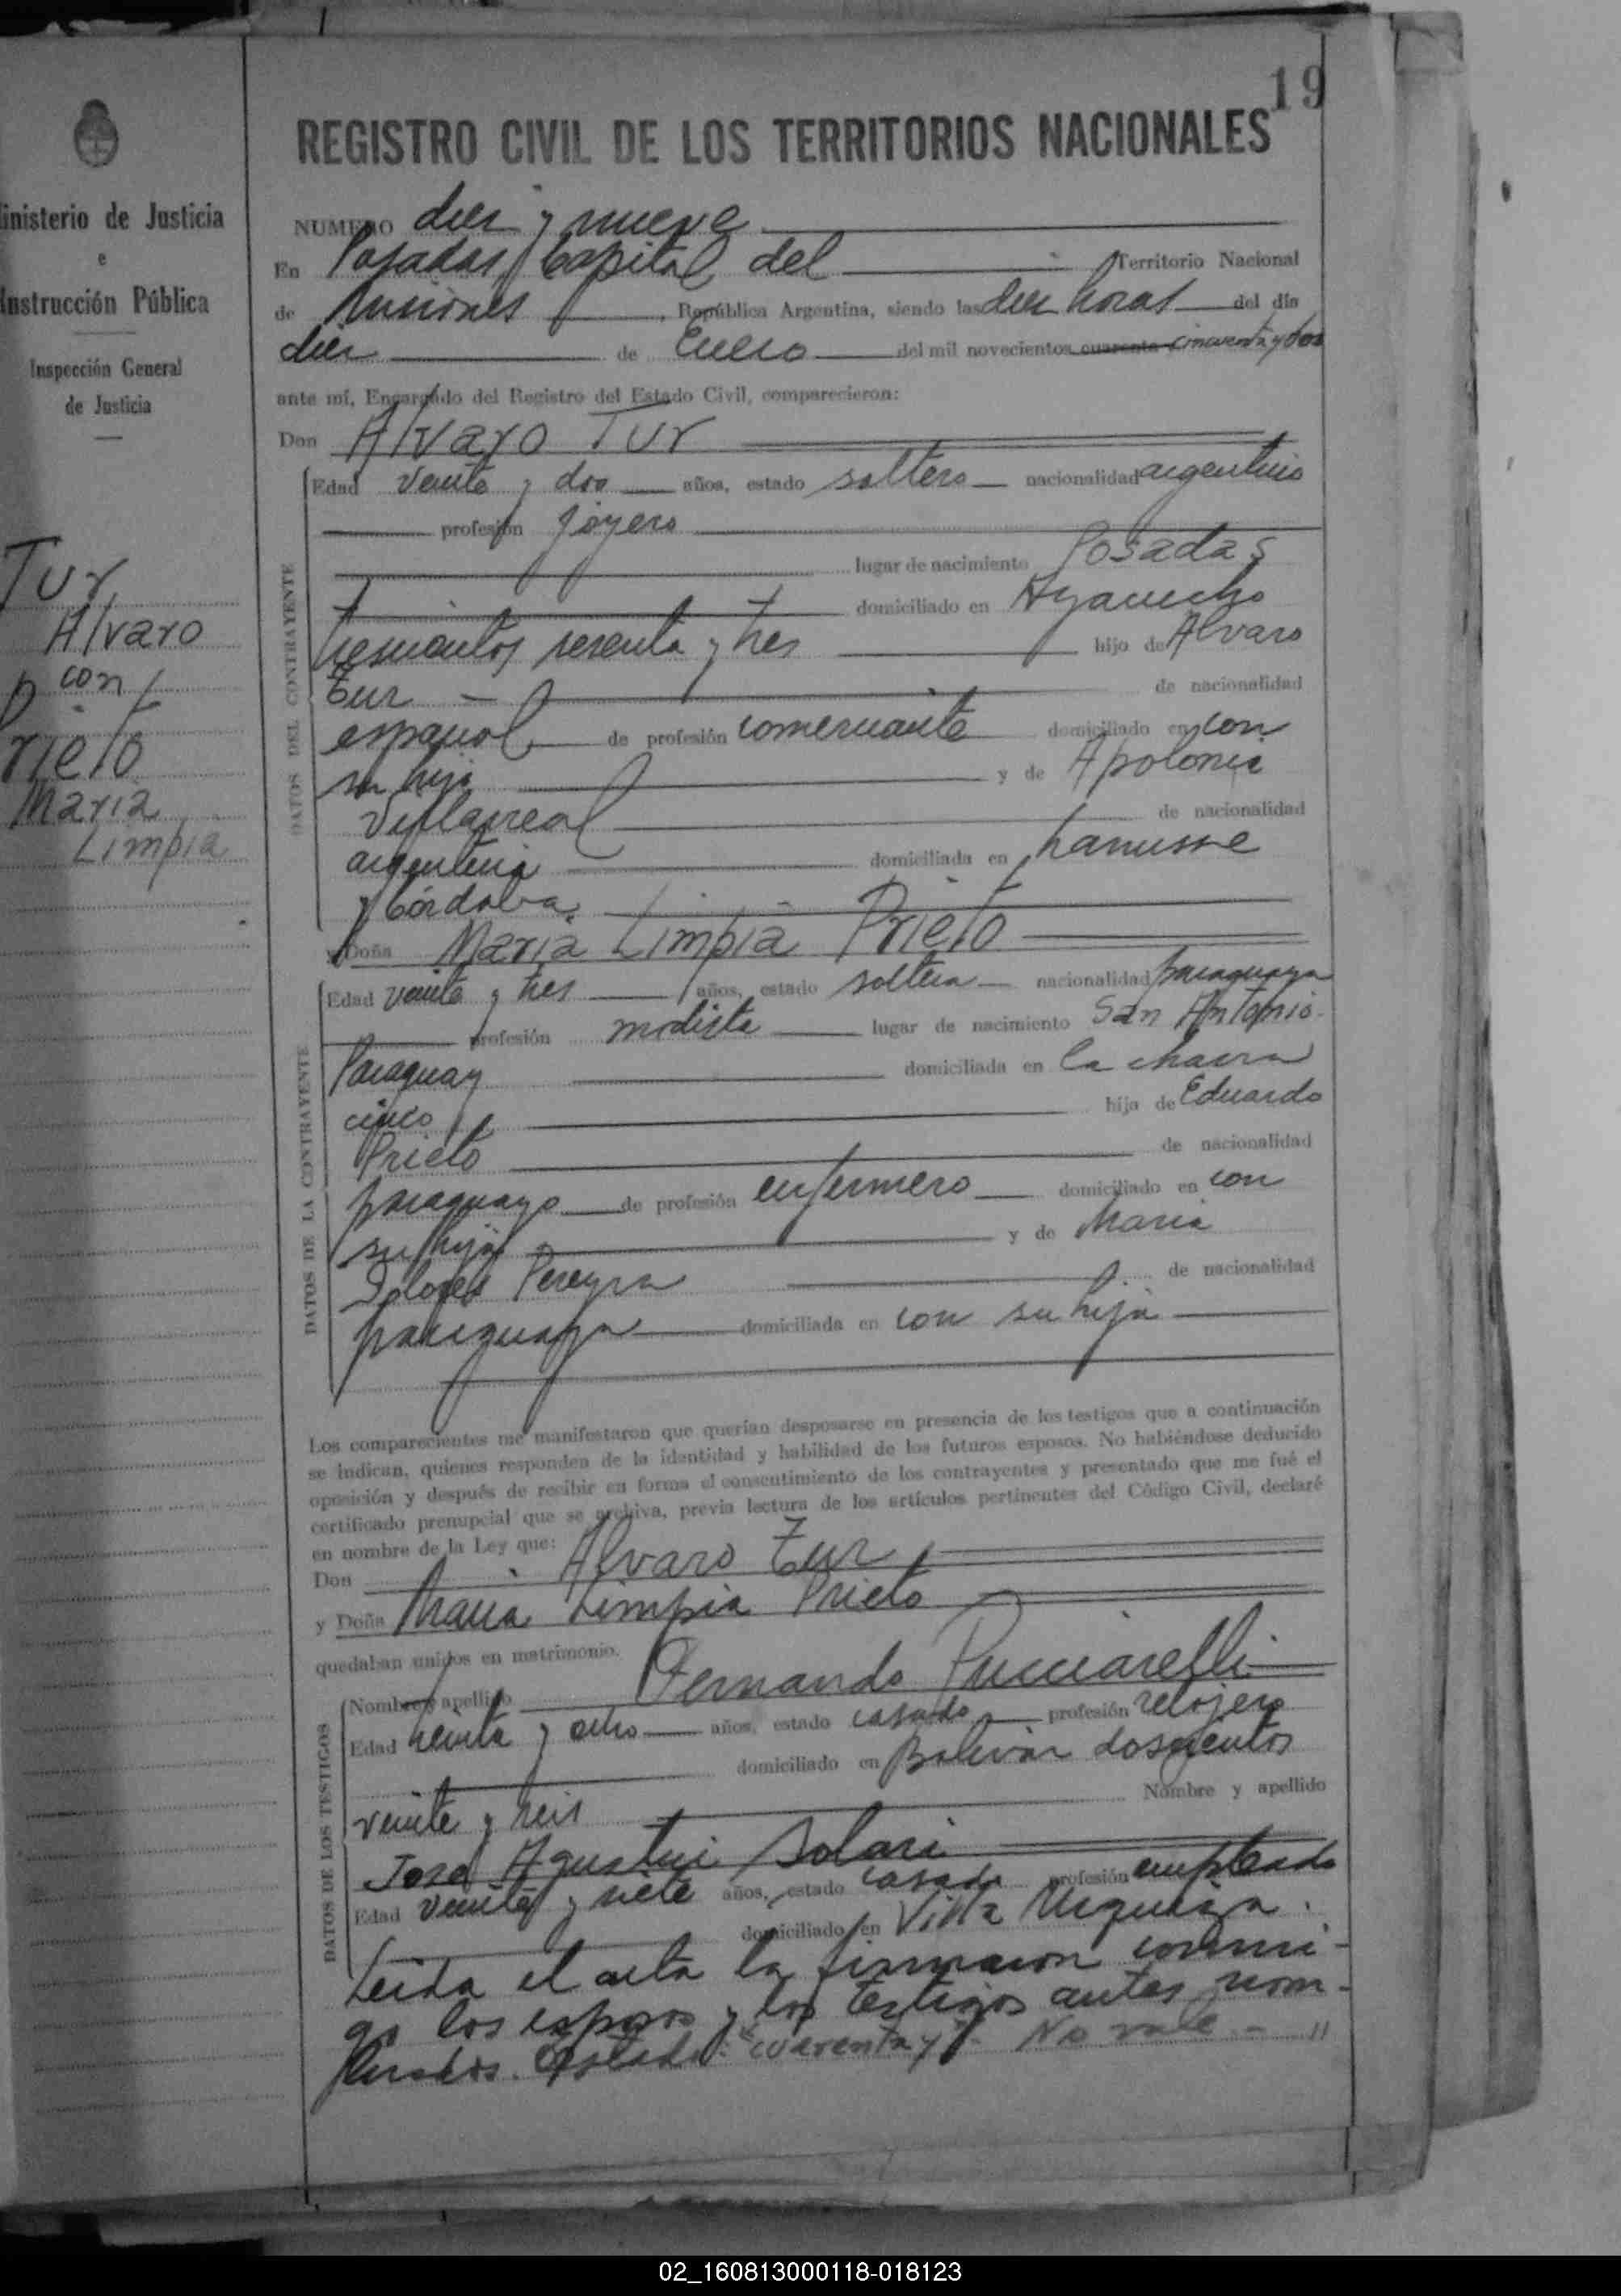 19
REGISTRO CIVIL DE LOS TERRITORIOS NACIONALES
inisterio de Justicia
e
Instrucción Pública
Inspección General
de Justicia
Tur
Alvaro
con
Prieto
Maria
Limpia
NUMERO diez y nueve
En Posadas, Capital del Territorio Nacional
de Misiones, República Argentina, siendo las diez horas del día
diez de Enero del mil novecientos cuarenta cincuenta y dos
ante mí, Encargado del Registro del Estado Civil, comparecieron:
Don Alvaro Tur
DATOS DEL CONTRAYENTE
Edad veinte y dos años, estado soltero nacionalidad argentino
profesión joyero
lugar de nacimiento Posadas
domiciliado en Ayacucho
trescientos sesenta y tres hijo de Alvaro
Tur de nacionalidad
español de profesión comerciante domiciliado en con
su hijo y de Apolonia
Villarreal de nacionalidad
argentina domiciliada en Lanusse
y Córdoba.
Doña Maria Limpia Prieto
DATOS DE LA CONTRAYENTE
Edad veinte y tres años, estado soltera nacionalidad paraguaya
profesión modista lugar de nacimiento San Antonio-
Paraguay domiciliada en la chacra
cinco hija de Eduardo
Prieto de nacionalidad
paraguayo de profesión enfermero domiciliado en con
su hija y de Maria
Dolores Pereyra de nacionalidad
paraguaya domiciliada en con su hija
Los comparecientes me manifestaron que querían desposarse en presencia de los testigos que a continuación
se indican, quienes responden de la identidad y habilidad de los futuros esposos. No habiéndose deducido
oposición y después de recibir en forma el consentimiento de los contrayentes y presentado que me fué el
certificado prenupcial que se archiva, previa lectura de los artículos pertinentes del Código Civil, declaré
en nombre de la Ley que:
Don Alvaro Tur
y Doña Maria Limpia Prieto
quedaban unidos en matrimonio.
DATOS DE LOS TESTIGOS
Nombre y apellido Fernando Pucciarelli
Edad y ocho años, estado casado profesión relojero
domiciliado en Bolivar doscientos
veinte y seis Nombre y apellido
José Agustin Solari
Edad veinte y siete años, estado casado profesión empleado
domiciliado en Villa Urquiza.
Leida el acta la firmaron conmi-
go los esposos y los testigos antes nom-
brados. Testado: "cuarenta y" No vale.- //
02_160813000118-018123